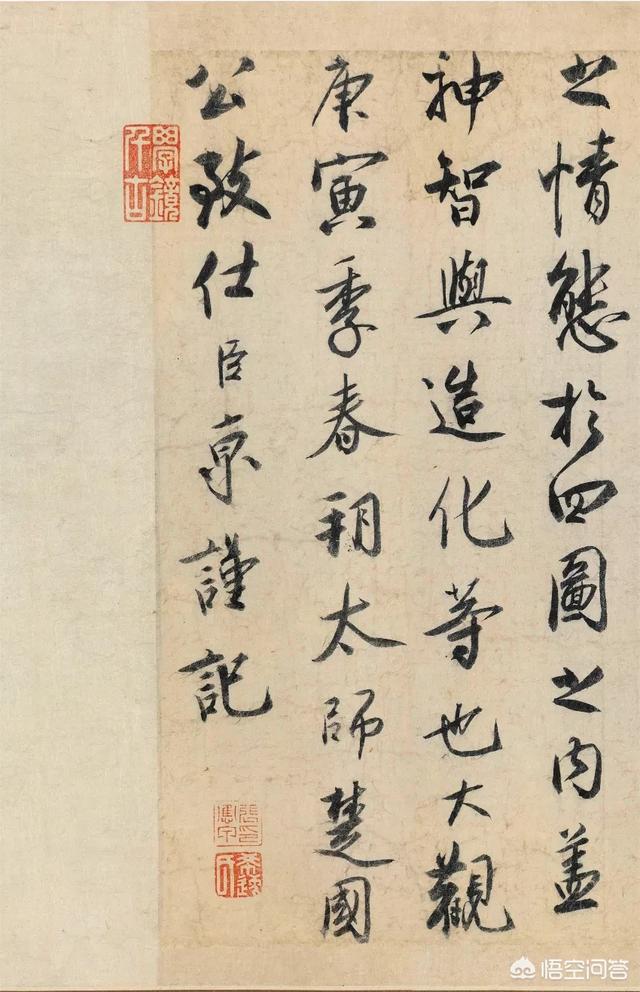 之情態於四圖之内盖
神智與造化等也大觀
庚寅季春朔太師楚國
公致仕臣京謹記
悟空问答